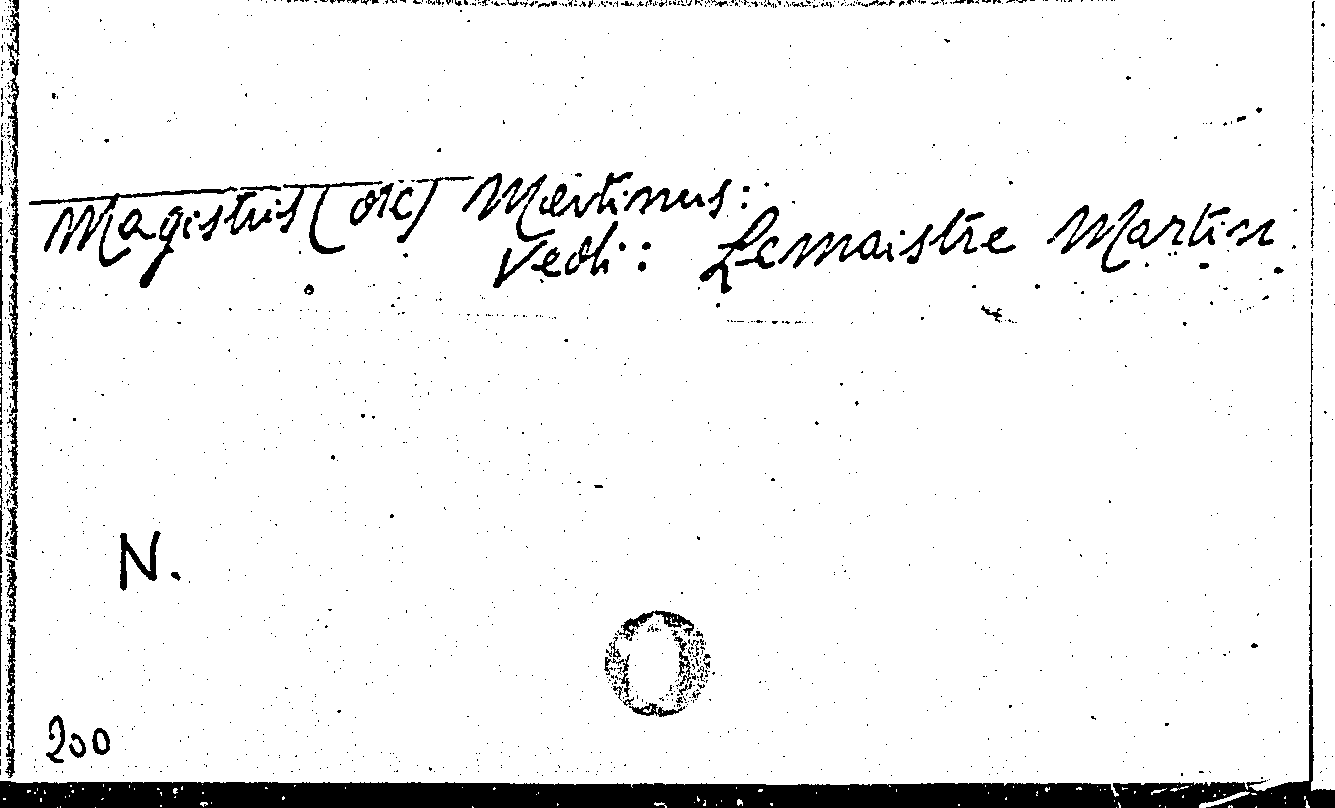 Magistris (de) Martinus:
Vedi: Lemaistre Martin
N.
200